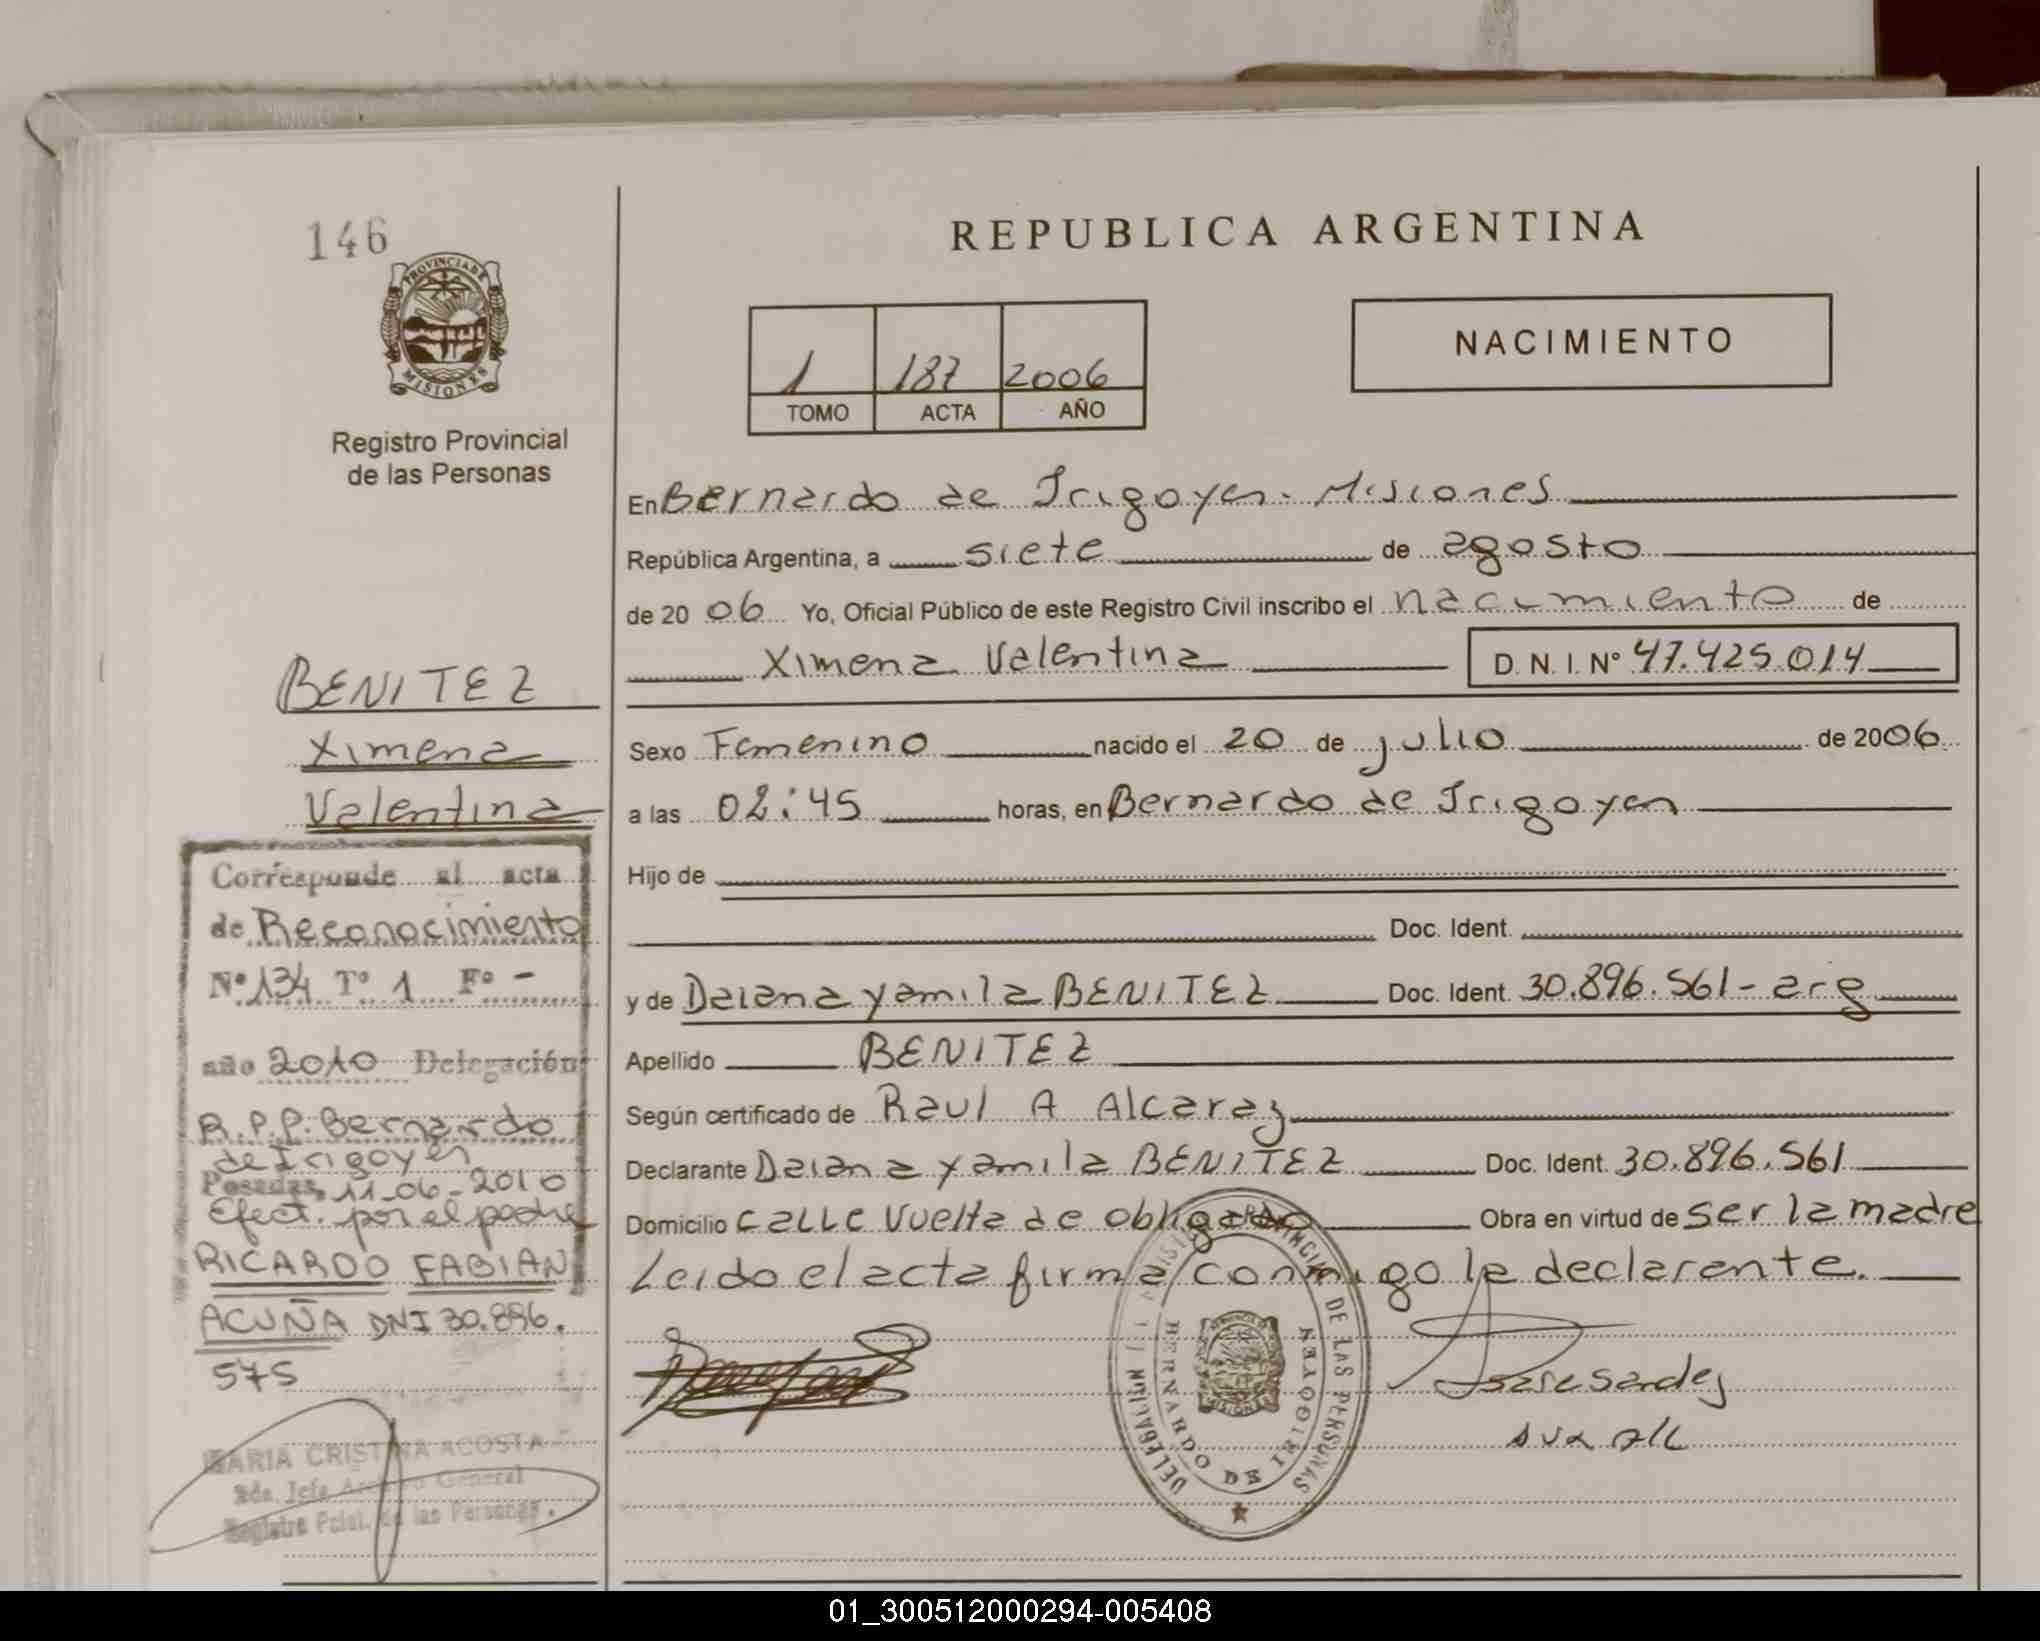 146
PROVINCIA DE
MISIONES
Registro Provincial
de las Personas
BENITEZ
Ximena
Valentina
Corresponde al acta
de Reconocimiento
Nº 134 Tº 1 Fº -
año 2010 Delegación
R.P.P. Bernardo
de Irigoyen
Posadas, 11-06-2010
Efect. por el padre
RICARDO FABIAN
ACUÑA DNI 30.896.
575
MARIA CRISTINA ACOSTA
2da. Jefa Archivo General
Registro Pcial. de las Personas.
REPUBLICA ARGENTINA
1 187 2006
TOMO ACTA AÑO
NACIMIENTO
En Bernardo de Irigoyen - Misiones
República Argentina, a siete de agosto
de 2006 Yo, Oficial Público de este Registro Civil inscribo el nacimiento de
Ximena Valentina D.N.I.Nº 47.425.014
Sexo Femenino nacido el 20 de julio de 2006
a las 02:45 horas, en Bernardo de Irigoyen
Hijo de
Doc. Ident.
y de Daiana yamila BENITEZ Doc. Ident. 30.896.561 - arg
Apellido BENITEZ
Según certificado de Raul A Alcaraz
Declarante Daiana yamila BENITEZ Doc. Ident. 30.896.561
Domicilio calle Vuelta de obligado Obra en virtud de ser la madre
Leido el acta firma conmigo la declarante.
DE LAS PERSONAS
BERNARDO DE IRIGOYEN
01_300512000294-005408